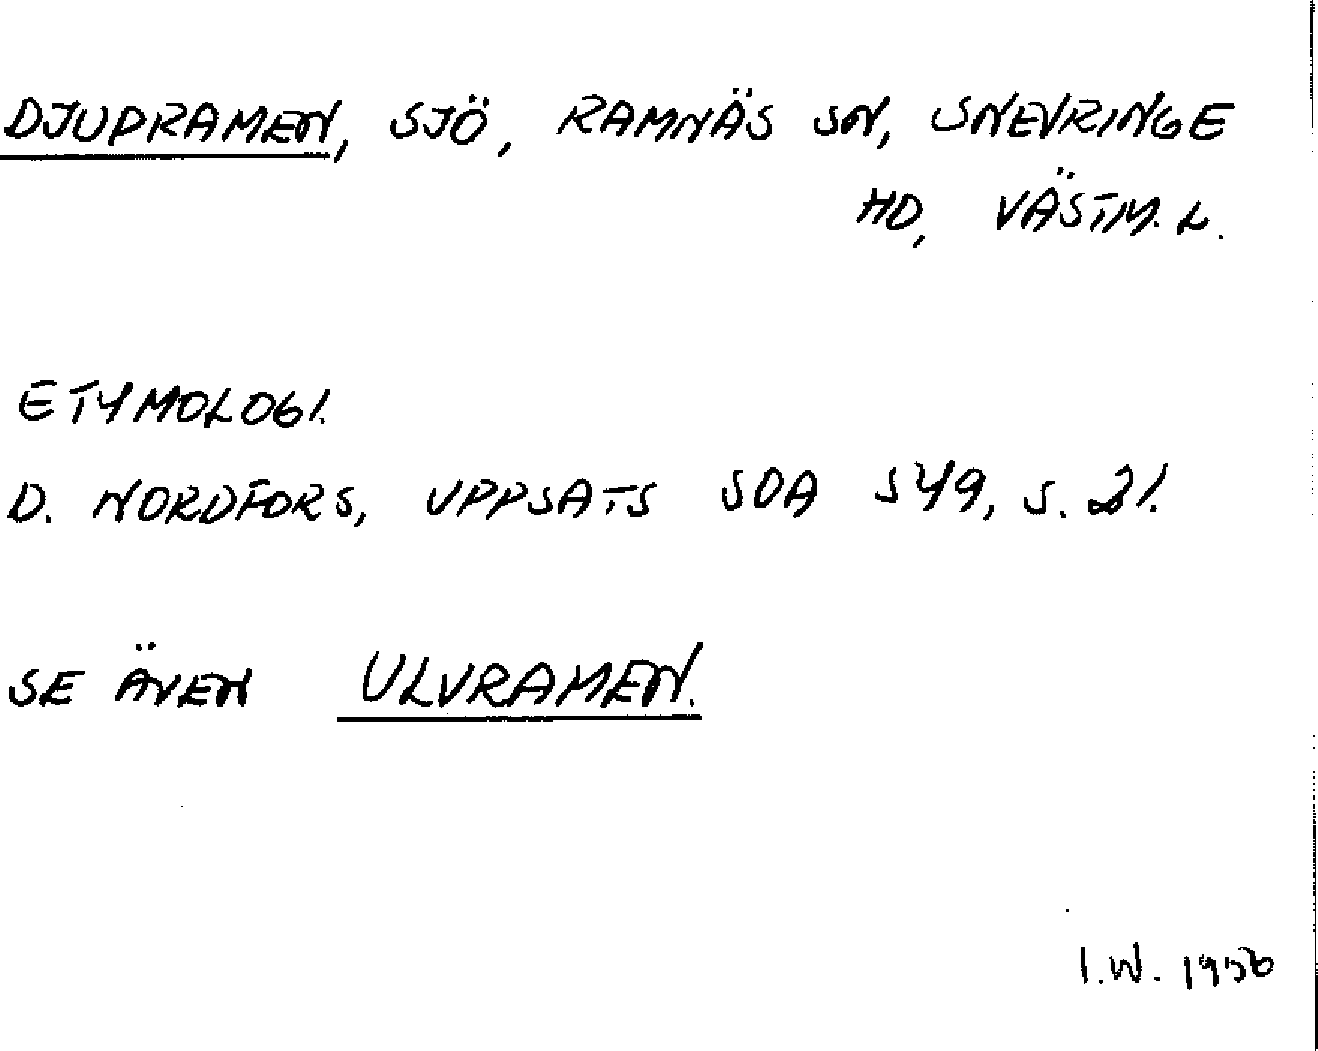 DJUPRAMEN, SJÖ, RAMNÄS SN, SNEVRINGE
HD, VÄSTM. L.
ETYMOLOGI.
D. NORDFORS, UPPSATS SOA 549, S. 21.
SE ÄVEN ULVRAMEN.
I.W. 1956